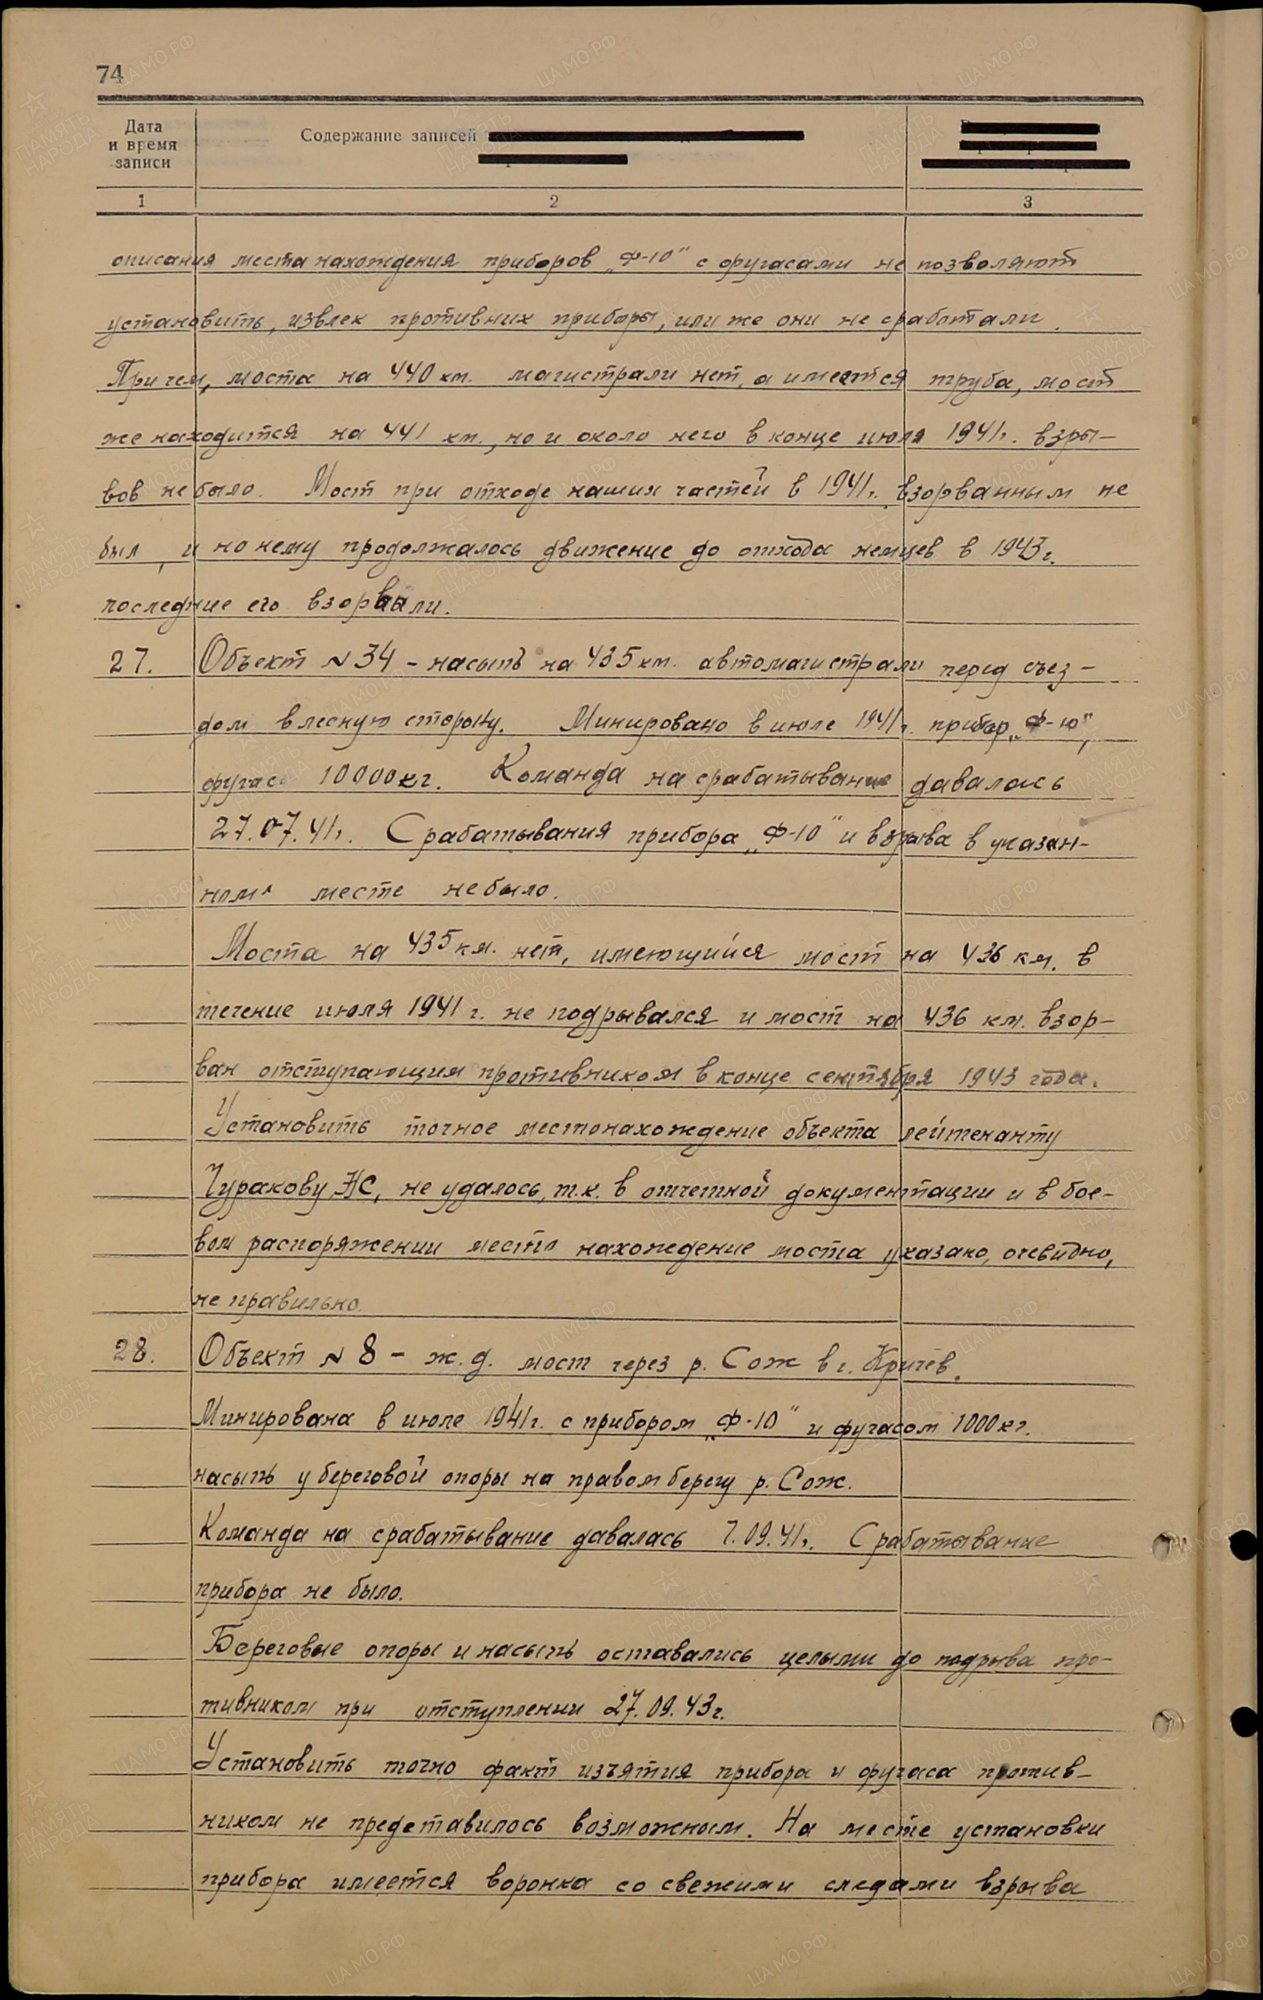 74
Дата
и время
записи
Содержание записей
1
2
3
описания места нахождения приборов „Ф-10" с фугасами не позволяют
установить, извлек противних приборы, или же они не сработали.
Причем, моста на 440 км. магистрали нет, а имеется труба, мост
же находится на 441 км., но и около него в конце июля 1941г. взры-
вов не было. Мост при отходе наших частей в 1941г. взорванным не
был, и по нему продолжалось движение до отхода немцев в 1943г.
последние его взорвали.
27. Объект №34 - насыпь на 435 км. автомагистрали перед съез-
дом в лесную сторону. Минировано в июле 1941г. прибор „Ф-10",
фугас 10000кг. Команда на срабатывание давалась
27.07.41г. Срабатывания прибора „Ф-10" и взрыва в указан-
ном месте не было.
Моста на 435 км. нет, имеющийся мост на 436 км. в
течение июля 1941 г. не подрывался и мост на 436 км. взор-
ван отступающим противником в конце сентября 1943 года.
Установить точное местонахождение объекта лейтенанту
Чуракову Н.С. не удалось, т.к. в отчетной документации и в бое-
вом распоряжении место нахождение моста указано, очевидно,
не правильно.
28. Объект №8 - ж.д. мост через р. Сож в г. Кричев.
Минирована в июле 1941г. с прибором „Ф-10" и фугасом 1000кг.
насыпь у береговой опоры на правом берегу р. Сож.
Команда на срабатывание давалась 7.09.41г. Срабатывание
прибора не было.
Береговые опоры и насыпь оставались целыми до подрыва про-
тивником при отступлении 27.09.43г.
Установить точно факт изъятия прибора и фугаса против-
ником не представилось возможным. На месте установки
прибора имеется воронка со свежими следами взрыва